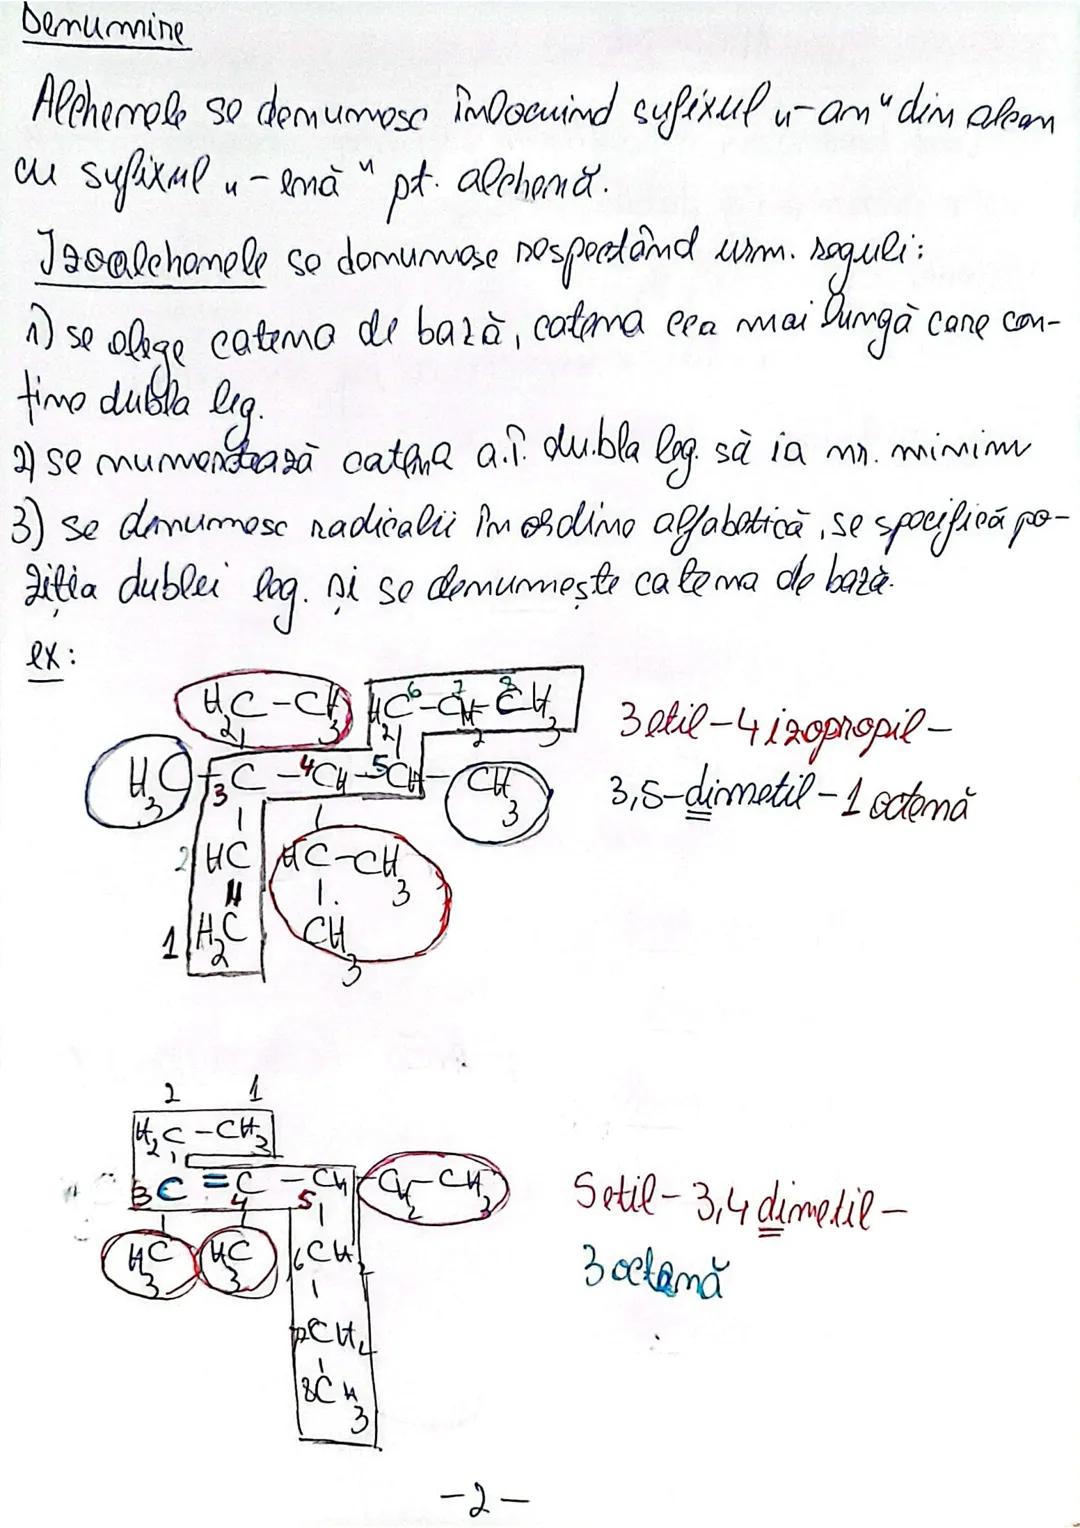 Denumire
Alchenele se denumesc înlocuind sufixul „-an“ din alcan
cu sufixul „-enă“ pt. alchenă.
Izoalchenele se denumesc respectând urm. reguli:
1) se alege catena de bază, catena cea mai lungă care con-
ține dubla leg.
2) se numerotează catena a.î. dubla leg. să ia nr. minim
3) se denumesc radicalii în ordine alfabetică, se specifică po-
ziția dublei leg. și se denumește catena de bază.
ex:
H2C-CH3 H2C6-CH27-CH38
H3C-C3-4CH-5CH-CH3
3etil-4izopropil-
3,5-dimetil-1octenă
2 HC HC-CH3
1 H2C CH3
2 1
H2C-CH3
3C=C4-CH5-CH2-CH3
5etil-3,4dimetil-
3octenă
H3C H3C 6CH2
7CH2
8CH3
-2-